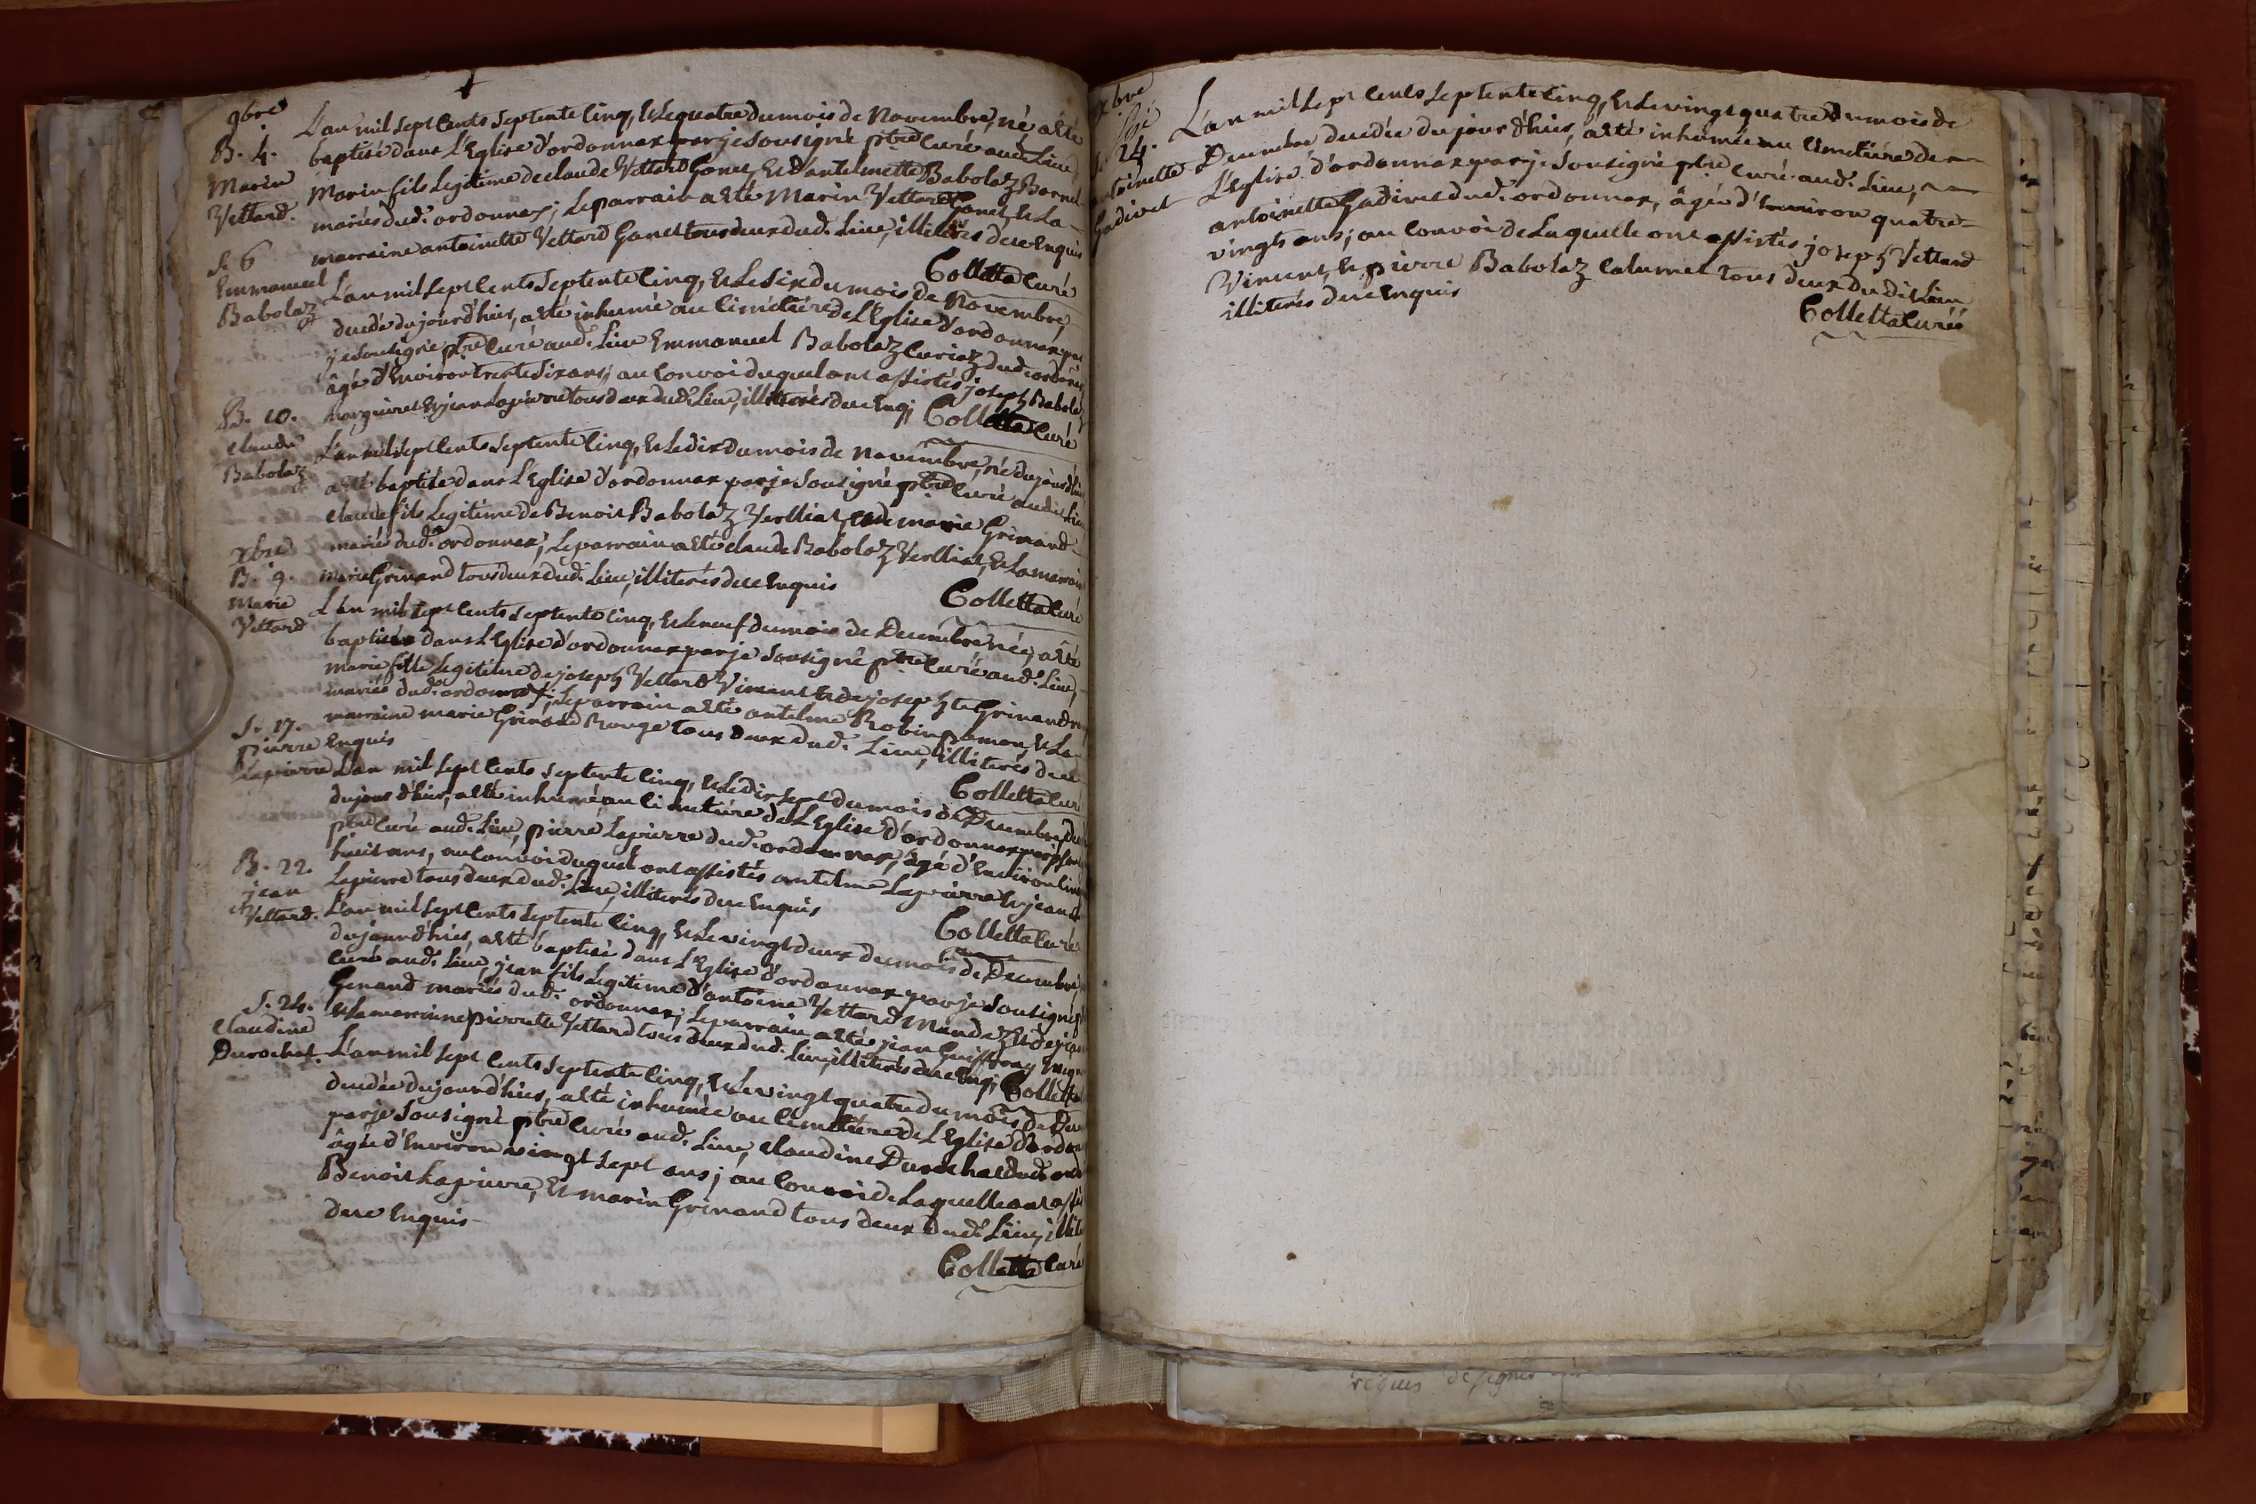 9bre
B. 4.
Marin
Vettard.
L'an mil sept cents septente cinq, & le quatre du mois de Novembre, né a été
baptisé dans L'Eglise d'ordonnax par je sousigné ptre curé aud. Lieu,
Marin fils Legitime de claude Vettard Ganet, & d'antelmette Babolaz Bornet
mariés dud. ordonnax; Le parrain a été Marin Vettard Ganet & La
marraine antoinette Vettard Ganet tous deux dud. Lieu, illiterés de ce enquis
Colletta curé
S. 6
Emmanuel
Babolaz
L'an mil sept cents septente cinq, & Le six du mois de Novembre,
decedé du jour d'hier, a été inhumé au cimétiére de L'Eglise d'ordonnax par
je sousigné ptre curé aud. Lieu Emmanuel Babolaz Curiaz dud. ordonnax
âgé d'Environ trente six ans; au convoi duquel ont assistés joseph Babolaz
& jean Lapierre tous deux dud. Lieu, illiterés de ce enq;
Colletta curé
B. 10.
claude
Babolaz
L'an mil sept cents septente cinq, & Le dix du mois de Novembre, né du jour d'hier
a été baptisé dans L'Eglise d'ordonnax par je sousigné ptre curé audit Lieu
claude fils Legitime de Benoit Babolaz Verlliat, & de marie Grinand
mariés dud. ordonnax; Le parrain a été claude Babolaz Verlliat, & La marraine
marie Grinand tous deux dud. Lieu, illiterés de ce enquis
Colletta curé
Xbre
B. 9.
Marie
Vettard
L'an mil sept cents septente cinq, & Le neuf du mois de Decembre née, a été
baptisée dans L'Eglise d'ordonnax par je sousigné ptre curé aud. Lieu,
marie fille Legitime de joseph Vettard Vincent & de josephte Grinand
mariés dud. ordonnax; Le parrain a été antelme Robin & La
marraine marie Grinand Rouge tous deux dud. Lieu, illiterés de ce
enquis
Colletta curé
S. 17.
pierre
Lapierre
L'an mil sept cents septente cinq, & Le dix sept du mois de Decembre,
du jour d'hier, a été inhumé au cimétiére de L'Eglise d'ordonnax par je
ptre curé aud. Lieu, pierre Lapierre dud. ordonnax, âgé d'Environ
huit ans, au convoi duquel ont assistés antelme Lapierre & jean
Lapierre tous deux dud. Lieu, illiterés de ce enquis
Colletta curé
B. 22.
jean
Vettard.
L'an mil sept cents septente cinq, & Le vingt deux du mois de Decembre,
du jour d'hier, a été baptisé dans L'Eglise d'ordonnax par je sousigné
curé aud. Lieu, jean fils Legitime d'antoine Vettard Mandaz & de
Genand mariés dud. ordonnax; Le parrain a été jean Guiffray
& La marraine pierrette Vettard tous deux dud. Lieu, illiterés de ce enq;
Colletta
S. 24.
claudine
Durochat.
L'an mil sept cents septente cinq, & Le vingt quatre du mois de
decedée du jour d'hier, a été inhumée au cimétiére de L'Eglise d'ordon
par je sousigné ptre curé aud. Lieu, claudine Durochat dud. ord
âgée d'Environ vingt sept ans; au convoi de Laquelle ont assis
Benoit Lapierre, & marin Grinand tous deux dud. Lieu, illite
de ce enquis
Colletta curé
xbre
24.
antoinette
Gadivet
L'an mil sept cents septente cinq, & Le vingt quatre du mois de
Decembre decedée du jour d'hier, a été inhumée au cimetiére de
L'Eglise d'ordonnax par je sousigné ptre curé aud. Lieu,
antoinette Gadivet dud. ordonnax, âgée d'Environ quatre
vingts ans; au convoi de Laquelle ont assistés joseph Vettard
Vincent, & pierre Babolaz Calumet tous deux dudit Lieu
illiterés de ce enquis
Colletta curé
requis de signer